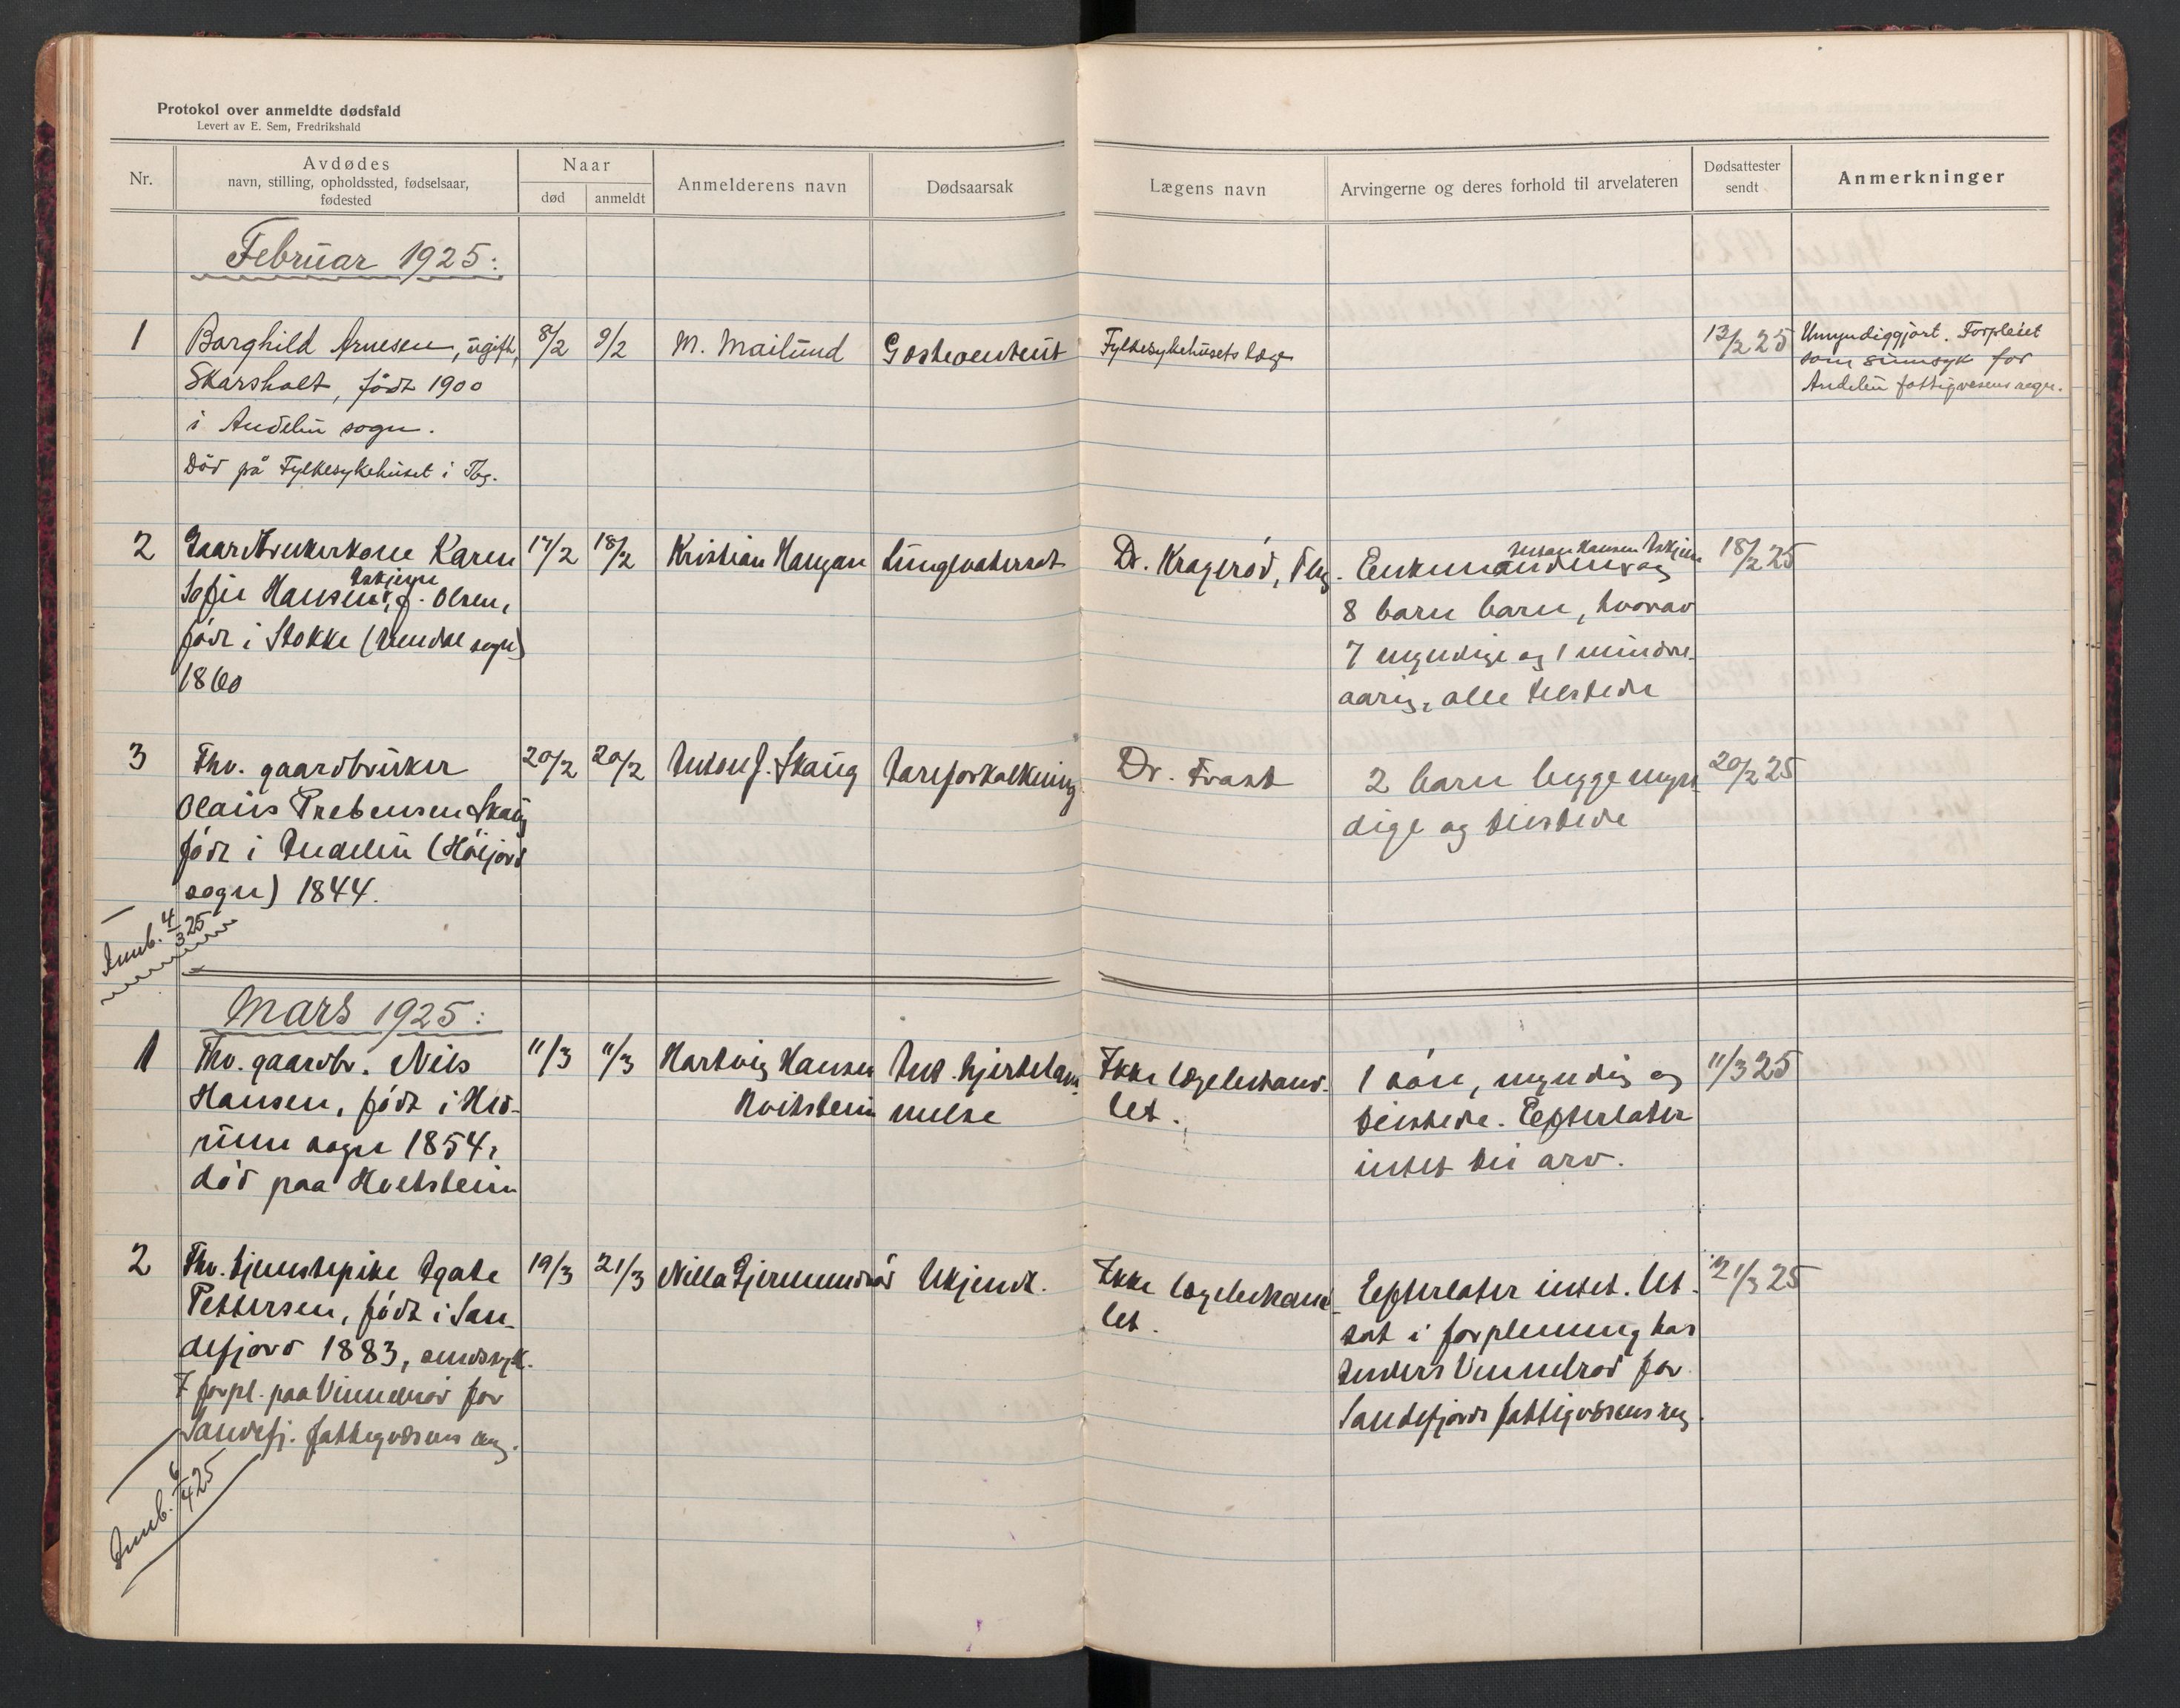 Protokol over anmeldte dødsfald
Levert av E. Sem, Fredrikshald
Nr.
Avdødes
navn, stilling, opholdssted, fødselsaar,
fødested
Naar
død
anmeldt
Anmelderens navn
Dødsaarsak
Lægens navn
Arvingerne og deres forhold til arvelateren
Dødsattester
sendt
Anmerkninger
Februar 1925:
1
Borghild Arnesen, ugift,
Skarsholt, født 1900
i Andebu sogn.
Død på Fylkesykehuset i Tbg.
8/2
9/2
M. Mailund
Fylkesykehusets læge
13/2 25
Umyndiggjort. Forpleiet
som sinnsyk for
Andebu fattigvesens regn.
2
Gaardbrukerkone Karen
Sofie Hansen, f. Olsen,
født i Stokke (Arendal sogn)
1860
17/2
18/2
Kristian Haugan
Lungebetennelse
Dr. Kragerød, Tbg.
Enkemanden og
8 barn barn, hvorav
7 myndige og 1 mindre-
aarig, alle tilstede
18/2 25
3
Fhv. gaardbruker
Olaus Prebensen Skaug
født i Andebu (Høijord
sogn) 1844.
20/2
20/2
Anton J. Skaug
Aareforkalkning
Dr. Frost
2 barn begge myn-
dige og tilstede
20/2 25
Innb. 4/3 25
Mars 1925:
1
Fhv. gaardbr. Nils
Hansen, født i Hed-
rum sogn 1854,
død paa Hvitstein
11/3
11/3
Hartvig Hansen
Hvitstein
Ant. hjertelam-
melse
Ikke lægebehand-
let.
1 søn, myndig og
tilstede. Efterlater
intet til arv.
11/3 25
2
Fhv. tjenestepike Agate
Pettersen, født i San-
defjord 1883, sindssyk.
Forpl. paa Vinnelrød for
Sandefj. fattigvæsens regn.
19/3
21/3
Nilla Gjermundrød
Ukjendt.
Ikke lægebehand-
let.
Efterlater intet. Ut-
sat i forpleining hos
Anders Vinnelrød for
Sandefjords fattigvæsens regn.
21/3 25
Innb. 6/4 25